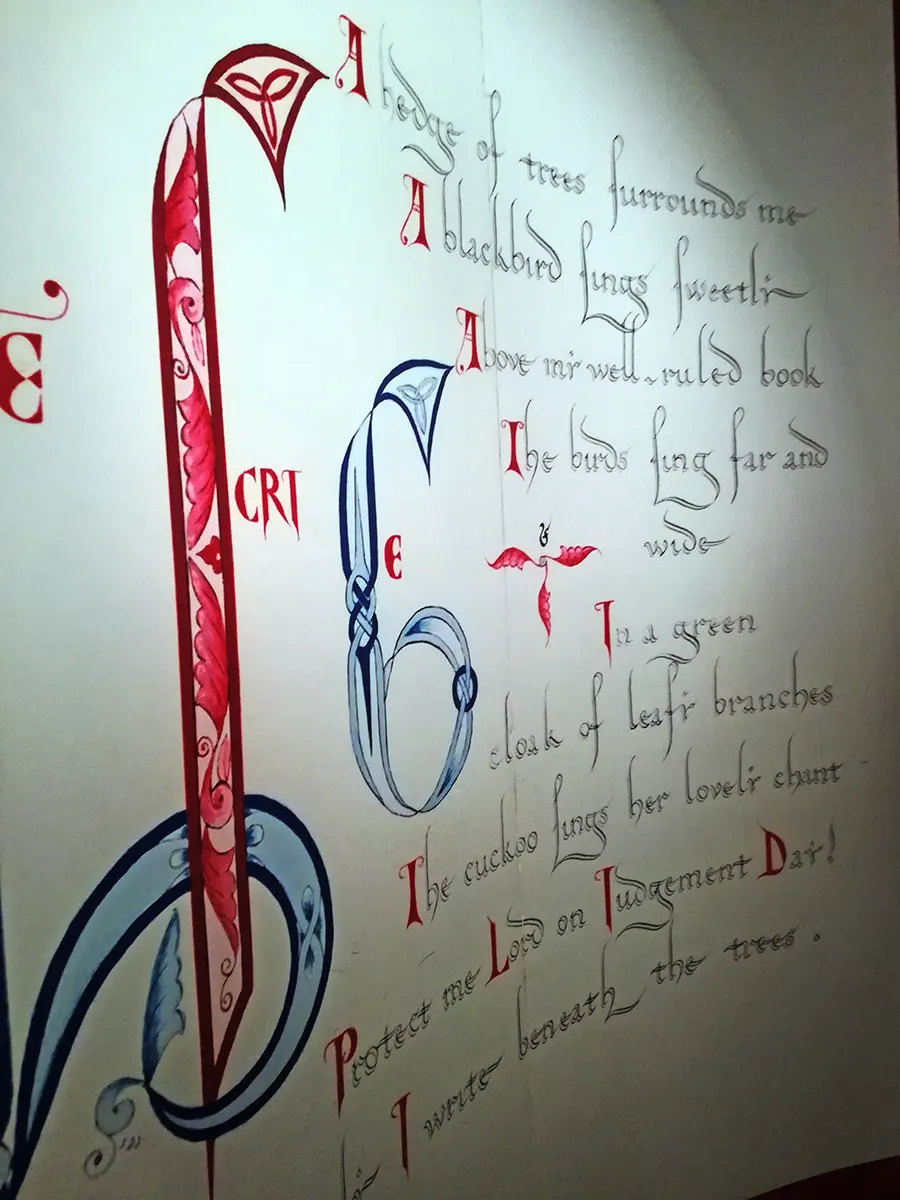 hE
ſCRIbE
A hedge of trees ſurrounds me
A blackbird ſings ſweetly
Above my well-ruled book
The birds ſing far and
wide
&
In a green
cloak of leafy branches
The cuckoo ſings her lovely chant
Protect me Lord on Judgement Day!
ly I write beneath the trees.